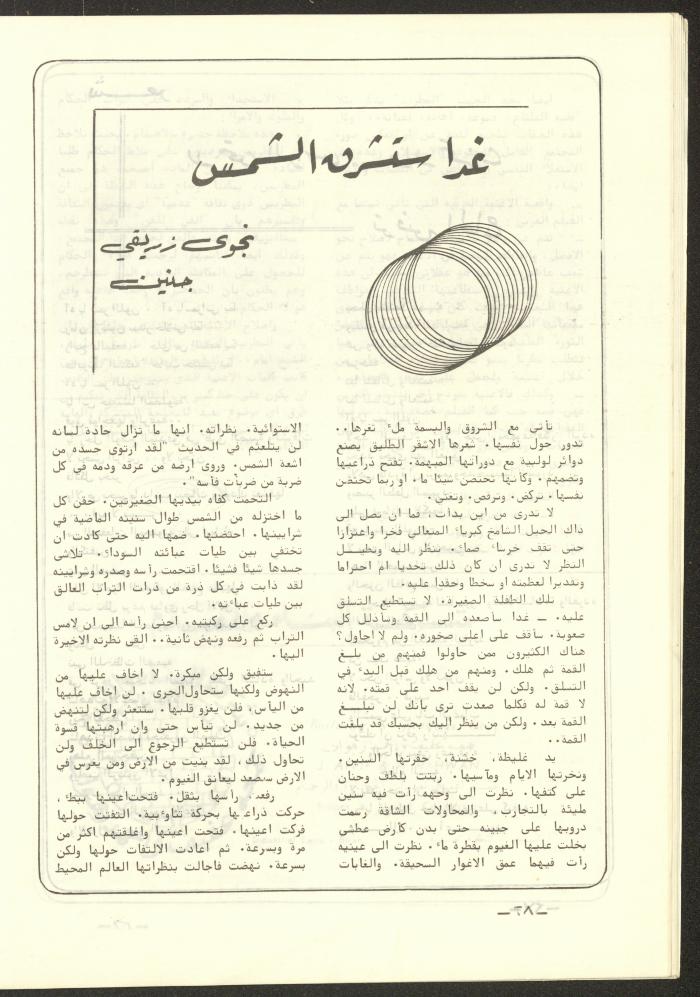 غدا ستشرق الشمس
نجوى زريقي
جنين
تأتي مع الشروق والبسمة ملء ثغرها..
تدور حول نفسها. شعرها الاشقر الطليق يصنع
دوائر لولبية مع دوراتها المبهمة. تفتح ذراعيها
وتضمهم. وكأنها تحتضن شيئا ما. او ربما تحتضن
نفسها. تركض. وترقص. وتغني.
لا ندري من اين بدأت، فما ان تصل الى
ذاك الجبل الشامخ كبرياء المتعالي فخرا واعتزازا
حتى تقف خرساء صماء. تنظر اليه وتطيــل
النظر لا ندري ان كان ذلك تحديا ام احتراما
وتقديرا لعظمته او سخطا وحقدا عليه.
تلك الطفلة الصغيرة. لا تستطيع التسلق
عليه. ــ غدا سأصعده الى القمة وسأذلل كل
صعوبة. سأقف على اعلى صخوره. ولم لا احاول؟
هناك الكثيرون ممن حاولوا فمنهم من بلــغ
القمة ثم هلك. ومنهم من هلك قبل البدء في
التسلق. ولكن لن يقف احد على قمته. لانه
لا قمة له فكلما صعدت ترى بأنك لن تبلــغ
القمة بعد. ولكن من ينظر اليك يحسبك قد بلغت
القمة..
يد غليظة، خشنة، حفرتها السنين.
ونخرتها الايام ومآسيها. ربتت بلطف وحنان
على كتفها. نظرت الى وجهه رأت فيه سنين
مليئة بالتجارب. والمحاولات الشاقة رسمت
دروبها على جبينه حتى بدن كأرض عطشى
بخلت عليها الغيوم بقطرة ماء. نظرت الى عينيه
رأت فيهما عمق الاغوار السحيقة. والغابات
الاستوائية. نظراته. انها ما تزال حادة لسانه
لن يتلعثم في الحديث "لقد ارتوى جسده من
اشعة الشمس. وروى ارضه من عرقه ودمه في كل
ضربة من ضربات فأسه".
التحمت كفاه بيديها الصغيرتين. حقن كل
ما اختزله من الشمس طوال سنينه الماضية في
شرايينها. احتضنها. ضمها اليه حتى كادت ان
تختفي بين طيات عبائته السوداء. تلاشى
جسدها شيئا فشيئا. اقتحمت رأسه وصدره وشرايينه
لقد ذابت في كل ذرة من ذرات التراب العالق
بين طيات عباءته.
ركع على ركبتيه. احنى رأسه الى ان لامس
التراب ثم رفعه ونهض ثانية.. القى نظرته الاخيرة
اليها.
ستفيق ولكن مبكرة. لا اخاف عليها من
النهوض ولكنها ستحاول الجري. لن اخاف عليها
من اليأس، فلن يغزو قلبها. ستتعثر ولكن لتنهض
من جديد. لن تيأس حتى وان ارهبتها قسوة
الحياة. فلن تستطيع الرجوع الى الخلف ولن
تحاول ذلك، لقد بنيت من الارض ومن يغرس في
الارض سيصعد ليعانق الغيوم.
رفعت رأسها بثقل. فتحت اعينها ببطء،
حركت ذراعيها بحركة تثاؤبية. التفتت حولها
فركت اعينها. فتحت اعينها واغلقتهم اكثر من
مرة وبسرعة. ثم اعادت الالتفات حولها ولكن
بسرعة. نهضت فاجالت بنظراتها العالم المحيط